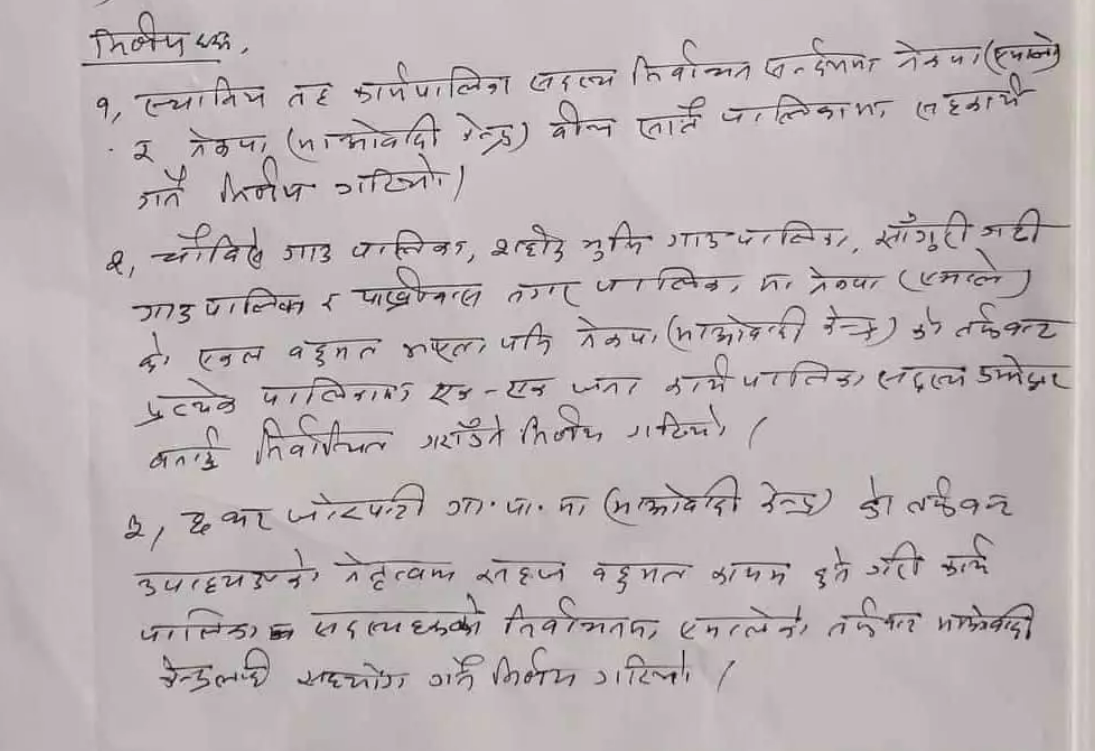 निर्णयहरू,
१, स्थानिय तह कार्यपालिका सदस्य निर्वाचन सन्दर्भमा नेकपा (एमाले)
र नेकपा (माओवादी केन्द्र) वीच सातै पालिकामा सहकार्य
गर्ने निर्णय गरियो।
२, चौविसे गाउ पालिका, शहीद भुमि गाउपालिका, साँगुरी गढी
गाउपालिका र पाख्रीबास नगर पालिका मा नेकपा (एमाले)
को एकल वहुमत भएता पनि नेकपा (माओवादी केन्द्र) को तर्फबाट
प्रत्येक पालिकामा एक-एक जना कार्यपालिका सदस्य उम्मेद्वार
बनाई निर्वाचित गराउने निर्णय गरियो।
३, छथर जोरपाटी गा.पा.मा (माओवादी केन्द्र) को तर्फबाट
उपाध्यक्षको नेतृत्वमा सहज वहुमत कायम हुने गरी कार्य
पालिका सदस्यहरूको निर्वाचनमा एमालेको तर्फबाट माओवादी
केन्द्रलाई सहयोग गर्ने निर्णय गरियो।